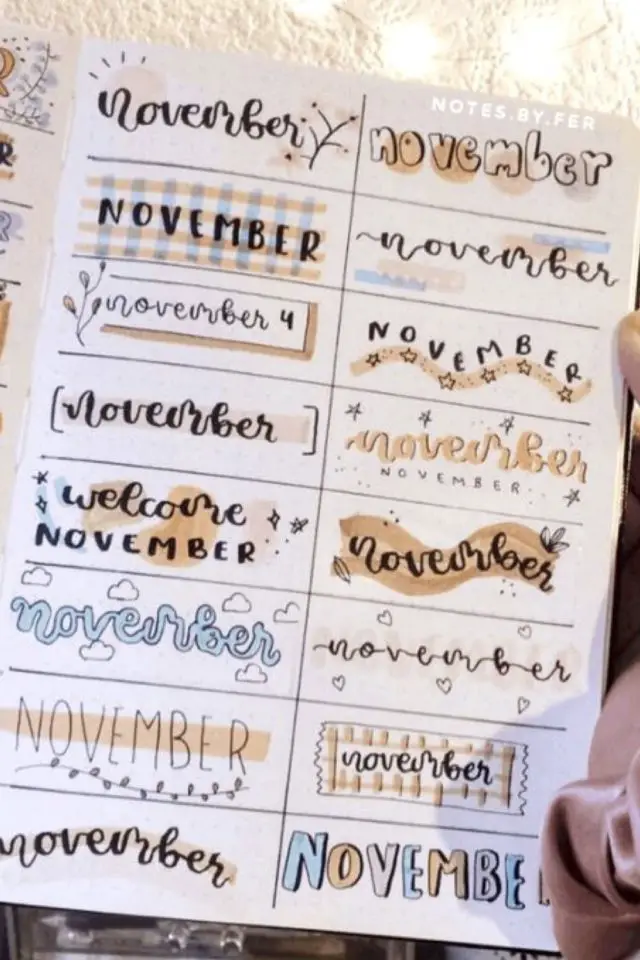 NOTES.BY.FER
november
november
NOVEMBER
november
november 4
NOVEMBER
[november]
november
NOVEMBER
welcome
NOVEMBER
november
november
november
NOVEMBER
november
november
NOVEMBE